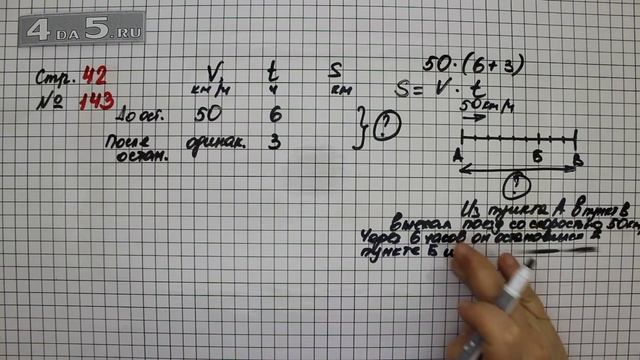 4 ДА 5.RU
Стр. 42
№ 143
V, t S
км/ч ч км
До ост. 50 6
После одинак. 3
остан.
?
50·(6+3)
S = V · t
50км/ч
А Б В
?
Из пункта А в пункт В
выехал поезд со скоростью 50км/
Через 6 часов он остановился в
пункте Б и